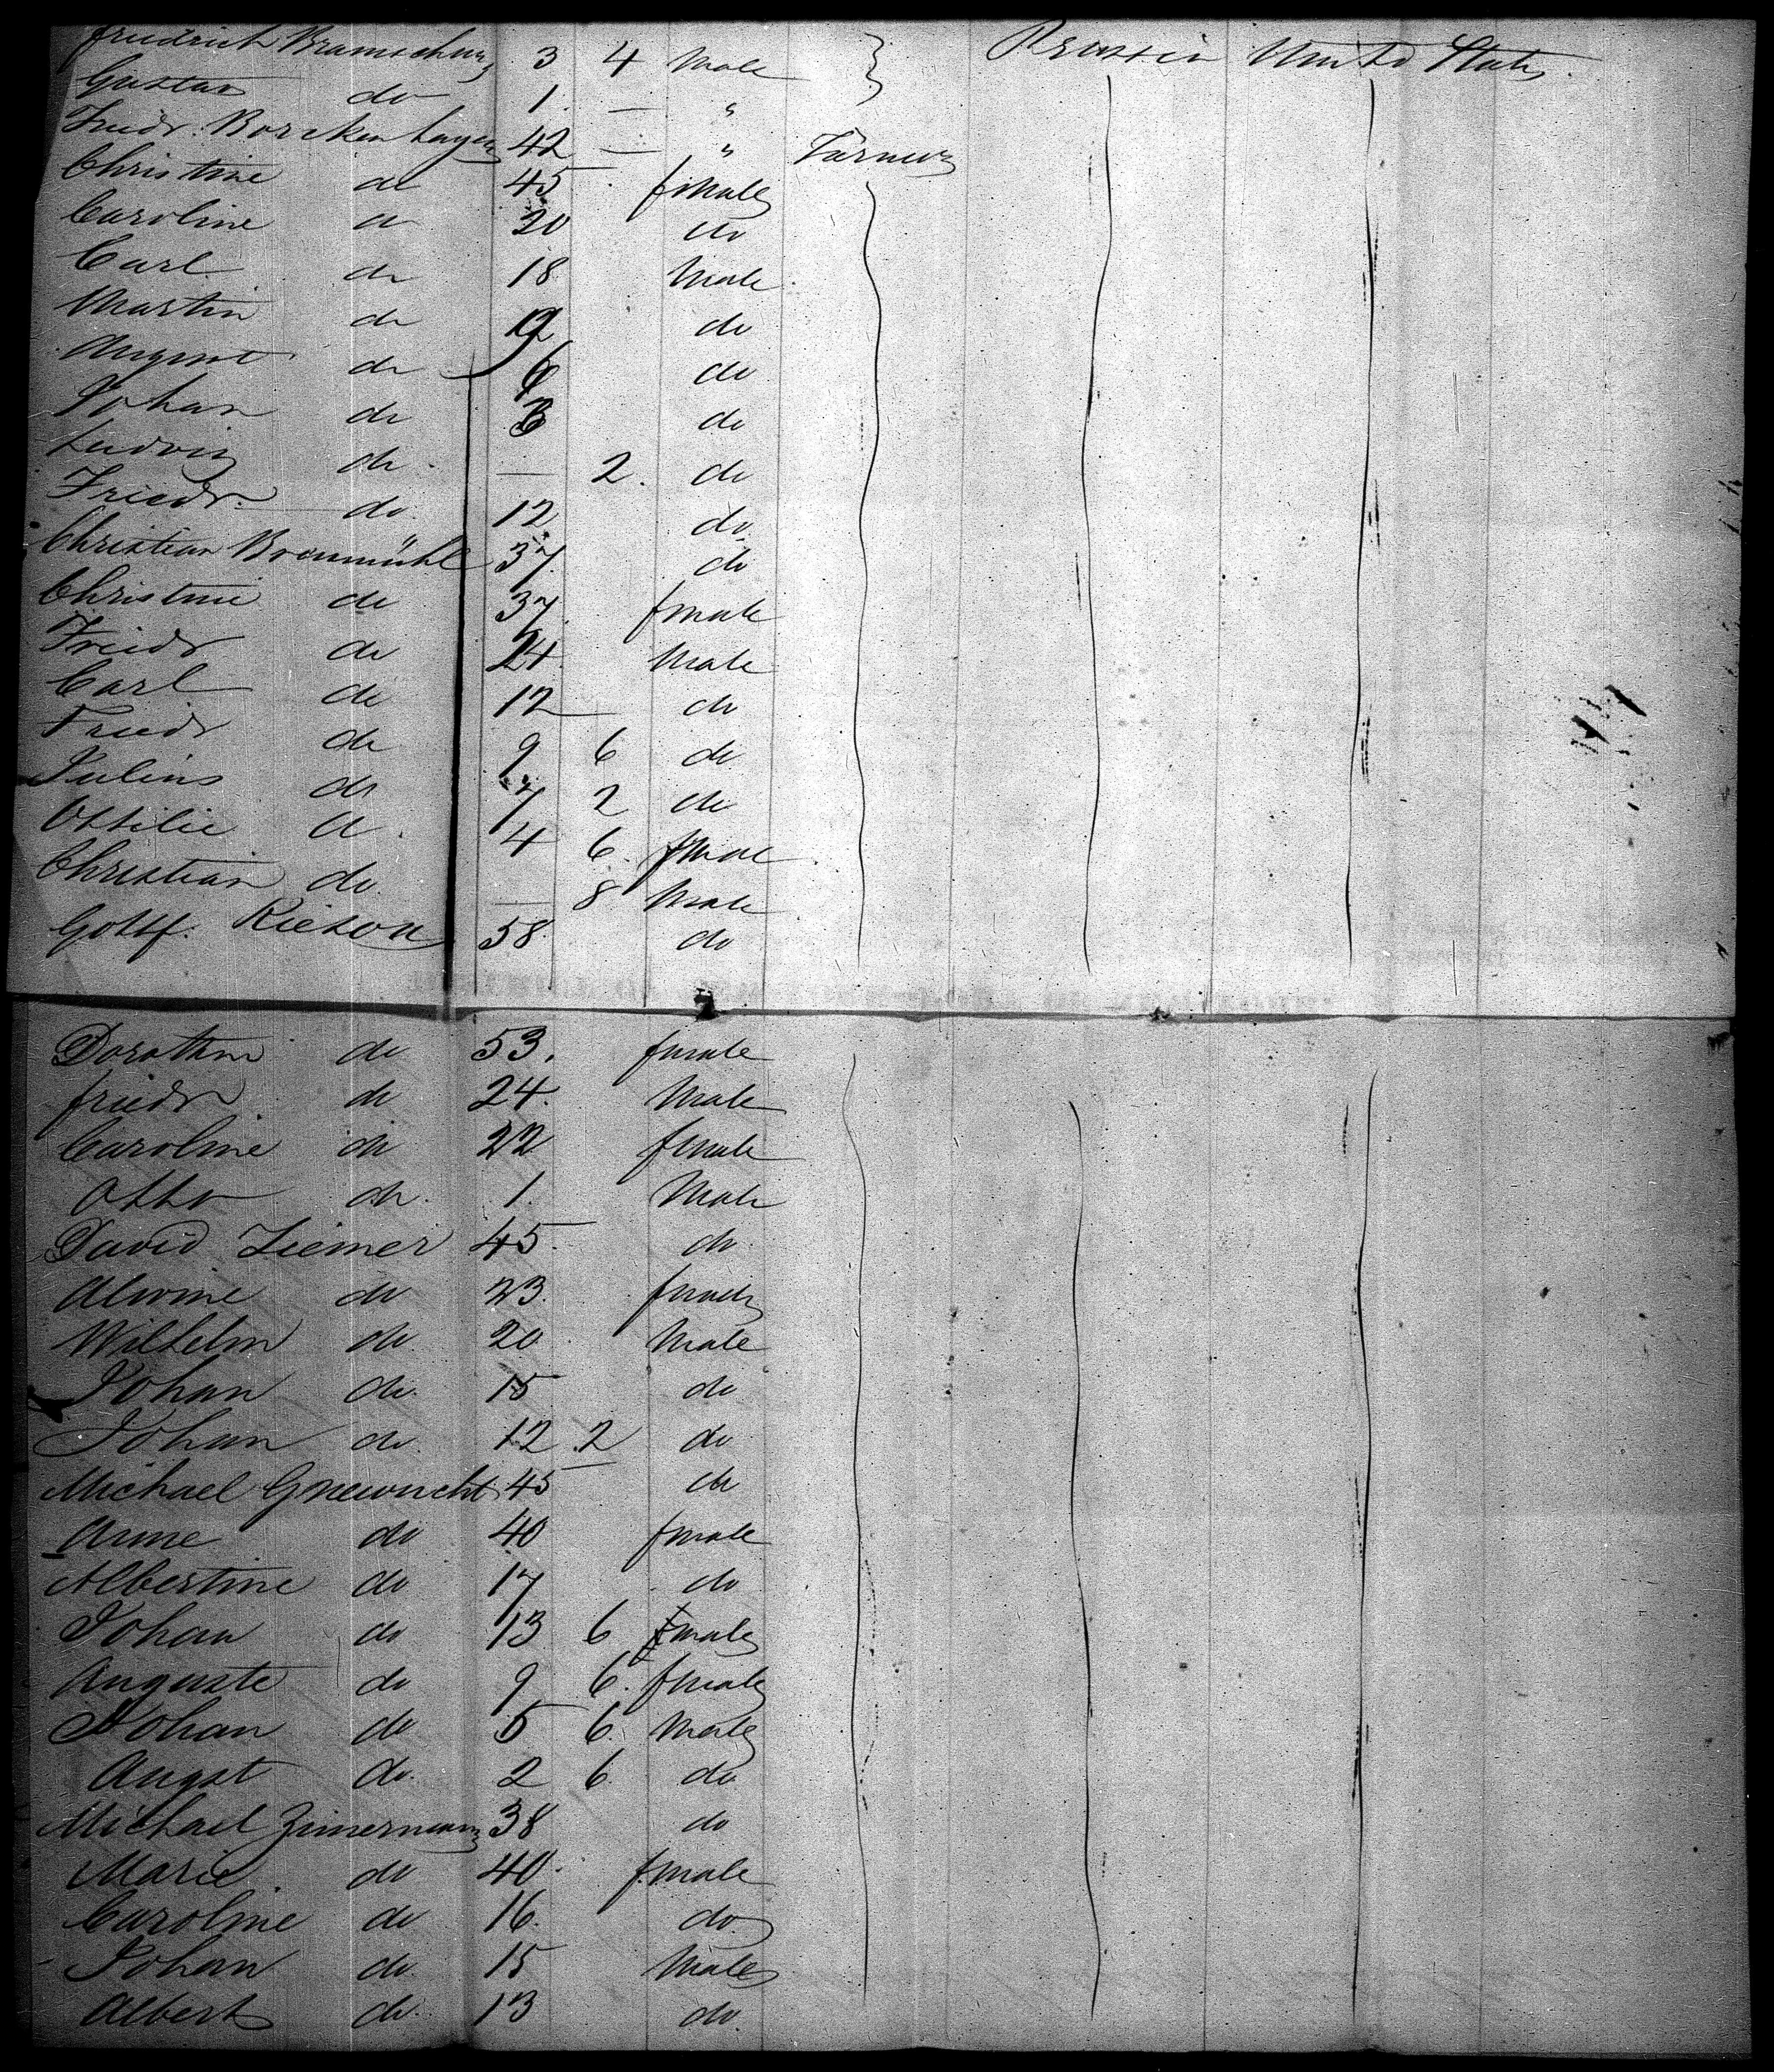 Friedrich Bramschung 3 4 Male } Prussia United States
Gustav do 1 — "
Friedr. Borckenhagen 42 — " Farmer
Christine do 45 female
Caroline do 20 do
Carl do 18 Male
Martin do do
August do 6 do
Johan do 3 do
Ludwig do — 2 do
Friedr. do 12 do
Christian Braumühl 37 do
Christine do 37 female
Friedr do 24 Male
Carl do 12 — do
Friedr do 9 6 do
Julius do 7 2 do
Ottilie do 4 6 female
Christian do — 8 Male
Gottf. Rieson 58 do
Dorothea do 53 female
friedr do 24 Male
Caroline do 22 female
Otto do 1 Male
David Ziemer 45 do
Alwine do 23 female
Wilhelm do 20 Male
Johan do 15 do
Johan do 12 2 do
Michael Gnewucht 45 — do
Anne do 40 female
Albertine do 17 do
Johan do 13 6 male
Auguste do 9 6 female
Johan do 5 6 Male
Augst do 2 6 do
Michael Zimermann 38 do
Marie do 40 female
Caroline do 16 do
Johan do 15 Male
Albert do 13 do